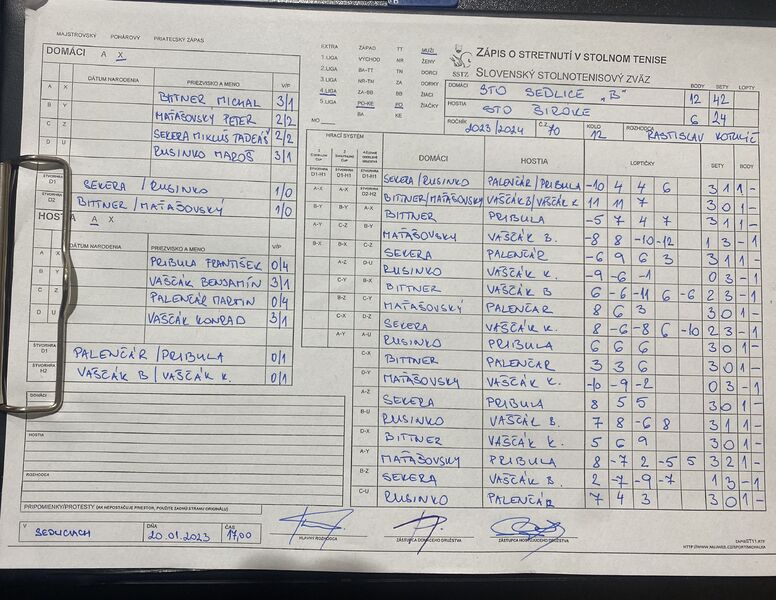 MAJSTROVSKÝ POHÁROVÝ PRIATEĽSKÝ ZÁPAS
DOMÁCI A X
DÁTUM NARODENIA PRIEZVISKO A MENO V/P
A X BITTNER MICHAL 3/1
B Y MAŤAŠOVSKÝ PETER 2/2
C Z SEKERA MIKULÁŠ TADEÁŠ 2/2
D U RUSINKO MAROŠ 3/1
ŠTVORHRA D1 SEKERA / RUSINKO 1/0
ŠTVORHRA D2 BITTNER / MAŤAŠOVSKÝ 1/0
HOSTIA A X
DÁTUM NARODENIA PRIEZVISKO A MENO V/P
A X PRIBULA FRANTIŠEK 0/4
B Y VAŠČÁK BENJAMÍN 3/1
C Z PALENČÁR MARTIN 0/4
D U VAŠČÁK KONRAD 3/1
ŠTVORHRA PALENČÁR / PRIBULA 0/1
ŠTVORHRA H2 VAŠČÁK B / VAŠČÁK K. 0/1
DOMÁCI
HOSTIA
ROZHODCA
PRIPOMIENKY/PROTESTY (AK NEPOSTAČUJE PRIESTOR, POUŽITE ZADNÚ STRANU ORIGINÁLU)
V SEDLICIACH DŇA 20.01.2023 ČAS 17,00
EXTRA ZÁPAD TT MUŽI
1.LIGA VÝCHOD NR ŽENY
2.LIGA BA-TT TN DORCI
3.LIGA NR-TN ZA DORKY
4.LIGA ZA-BB BB ŽIACI
5.LIGA PO-KE PO ŽIAČKY
NO BA KE
SSTZ
ZÁPIS O STRETNUTÍ V STOLNOM TENISE
SLOVENSKÝ STOLNOTENISOVÝ ZVÄZ
BODY SETY LOPTY
DOMÁCI STO SEDLICE „B" 12 42
HOSTIA STO ŠIROKÉ 6 24
ROČNÍK 2023/2024 Č.Z. 70 KOLO 12 ROZHODCA RASTISLAV
HRACÍ SYSTÉM DOMÁCI HOSTIA LOPTIČKY SETY BODY
D1-H1 D1-H1 D1-H1 SEKERA/RUSINKO PALENČÁR/PRIBULA -10 4 4 6 3 1 1 -
A-X A-X D2-H2 BITTNER/MAŤAŠOVSKÝ VAŠČÁK B/VAŠČÁK K 11 11 7 3 0 1 -
B-Y B-Y A-X BITTNER PRIBULA -5 7 4 7 3 1 1 -
A-Y C-Z B-Y MAŤAŠOVSKÝ VAŠČÁK B. -8 8 -10 -12 1 3 - 1
B-X B-X C-Z SEKERA PALENČÁR -6 9 6 3 3 1 1 -
A-Z D-U RUSINKO VAŠČÁK K. -9 -6 -1 0 3 - 1
C-Y B-X BITTNER VAŠČÁK B 6 -6 -11 6 -6 2 3 - 1
B-Z C-Y MAŤAŠOVSKÝ PALENČÁR 8 6 3 3 0 1 -
C-X D-Z SEKERA VAŠČÁK K. 8 -6 -8 6 -10 2 3 - 1
A-Y A-U RUSINKO PRIBULA 6 6 6 3 0 1 -
C-X BITTNER PALENČÁR 3 3 6 3 0 1 -
D-Y MAŤAŠOVSKÝ VAŠČÁK K. -10 -9 -2 0 3 - 1
A-Z SEKERA PRIBULA 8 5 5 3 0 1 -
B-U RUSINKO VAŠČÁK B. 7 8 -6 8 3 1 1 -
D-X BITTNER VAŠČÁK K. 5 6 9 3 0 1 -
A-Y MAŤAŠOVSKÝ PRIBULA 8 -7 2 -5 5 3 2 1 -
B-Z SEKERA VAŠČÁK B. 2 -7 -9 -7 1 3 - 1
C-U RUSINKO PALENČÁR 7 4 3 3 0 1 -
HLAVNÝ ROZHODCA ZÁSTUPCA DOMÁCEHO DRUŽSTVA ZÁSTUPCA HOSŤUJÚCEHO DRUŽSTVA